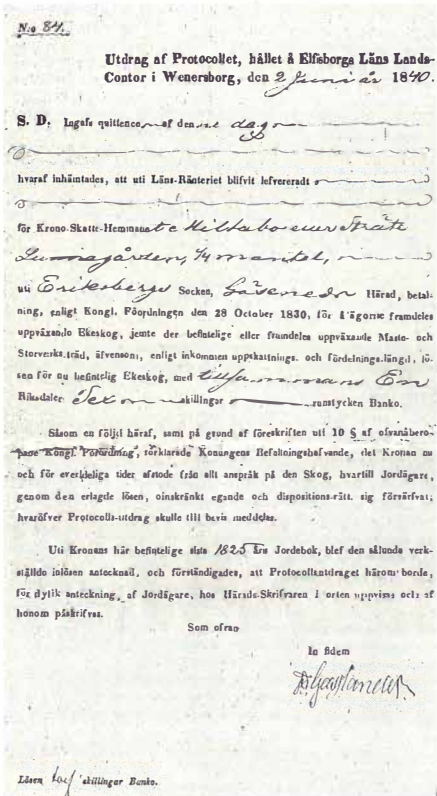 N:o 84.
Utdrag af Protocollet, hållet å Elfsborgs Läns Lands-
Contor i Wenersborg, den 2 Juni år 1840.
S. D. Ingafs quittence af den dag
hvaraf inhämtades, att uti Läns-Ränteriet blifvit lefvereradt
för Krono-Skatte-Hemmanet
1/4 mantel,
uti Eriksbergs Socken, Gäsened Härad, betal-
ning, enligt Kongl. Föordningen den 28 October 1830, för å ägorne framdeles
uppväxande Ekeskog, jemte der befintelige eller framdeles uppväxande Maste- och
Storverks-träd, äfvensom, enligt inkommen uppskattnings- och fördelnings-längd, lö-
sen för nu befintelig Ekeskog, med tillsammans En
Riksdaler Sex skillingar runstycken Banko.
Såsom en följd häraf, samt på grund af föreskriften uti 10 § af ofvanåbero-
pade Kongl. Förordning, förklarade Konungens Befallningshafvande, det Kronan nu
och för everldeliga tider afstode från allt anspråk på den Skog, hvartill Jordägare,
genom den erlagde lösen, oinskränkt egande och dispositions-rätt sig förvärfvat;
hvaröfver Protocolls-utdrag skulle till bevis meddelas.
Uti Kronans här befintelige sista 1825 års Jordebok, blef den sålunda verk-
ställde inlösen antecknad, och förständigades, att Protocollsutdraget härom borde,
för dylik anteckning, af Jordägare, hos Härads-Skrifvaren i orten uppvisas och af
honom påskrifvas.
Som ofvan
In fidem
Lösen tolf skillingar Banko.